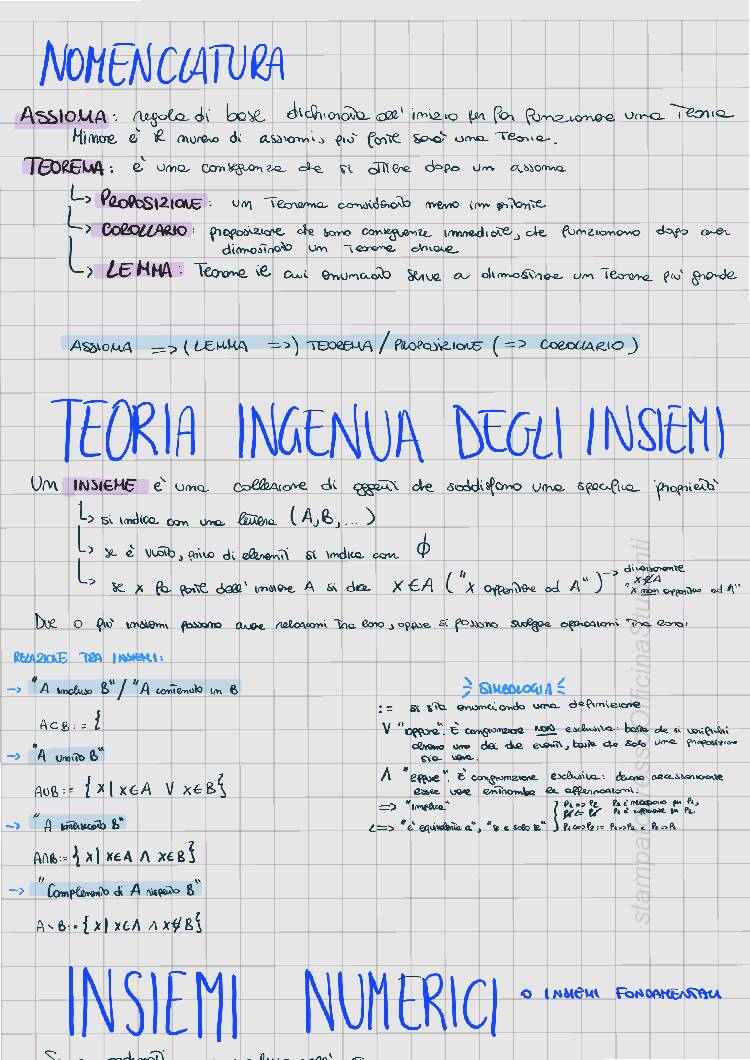 NOMENCLATURA
ASSIOMA: regola di base dichiarata all'inizio per far funzionare una Teoria
Minore è il numero di assiomi, più forte sarà una Teoria.
TEOREMA: è una conseguenza che si ottiene dopo un assioma
↳ PROPOSIZIONE: un Teorema considerato meno importante
↳ COROLLARIO: proposizione che sono conseguenze immediate, che funzionano dopo aver
dimostrato un Teorema chiave
↳ LEMMA: Teorema il cui enunciato serve a dimostrare un Teorema più grande
ASSIOMA => (LEMMA =>) TEOREMA / PROPOSIZIONE (=> COROLLARIO)
TEORIA INGENUA DEGLI INSIEMI
Un INSIEME è una collezione di oggetti che soddisfano una specifica proprietà
↳ si indica con una lettera (A,B,...)
↳ se è vuoto, privo di elementi si indica con ϕ
↳ se x fa parte dell'insieme A si dice x∈A ("x appartiene ad A") → diversamente
x∉A
"x non appartiene ad A"
Due o più insiemi possono avere relazioni tra loro, oppure si possono svolgere operazioni tra loro:
RELAZIONE TRA INSIEMI:
→ "A incluso B" / "A contenuto in B
A⊂B := {
→ "A unito B"
A∪B := { x | x∈A ∨ x∈B }
→ "A intersecato B"
A∩B := { x | x∈A ∧ x∈B }
→ "Complemento di A rispetto B"
A∖B := { x | x∈A ∧ x∉B }
SIMBOLOGIA
:= si sta enunciando una definizione
∨ "oppure". È congiunzione NON esclusiva: basta che si verifichi
almeno uno dei due eventi, basta che solo una proposizione
sia vera.
∧ "eppure". È congiunzione esclusiva: devono necessariamente
essere vere entrambe le affermazioni.
=> "implica" } P₁ => P₂ P₂ è necessario per P₁,
P₁ è sufficiente per P₂.
<=> "è equivalente a", "se e solo se" } P₁ <=> P₂ := P₁ => P₂ e P₂ => P₁
INSIEMI NUMERICI o INSIEMI FONDAMENTALI